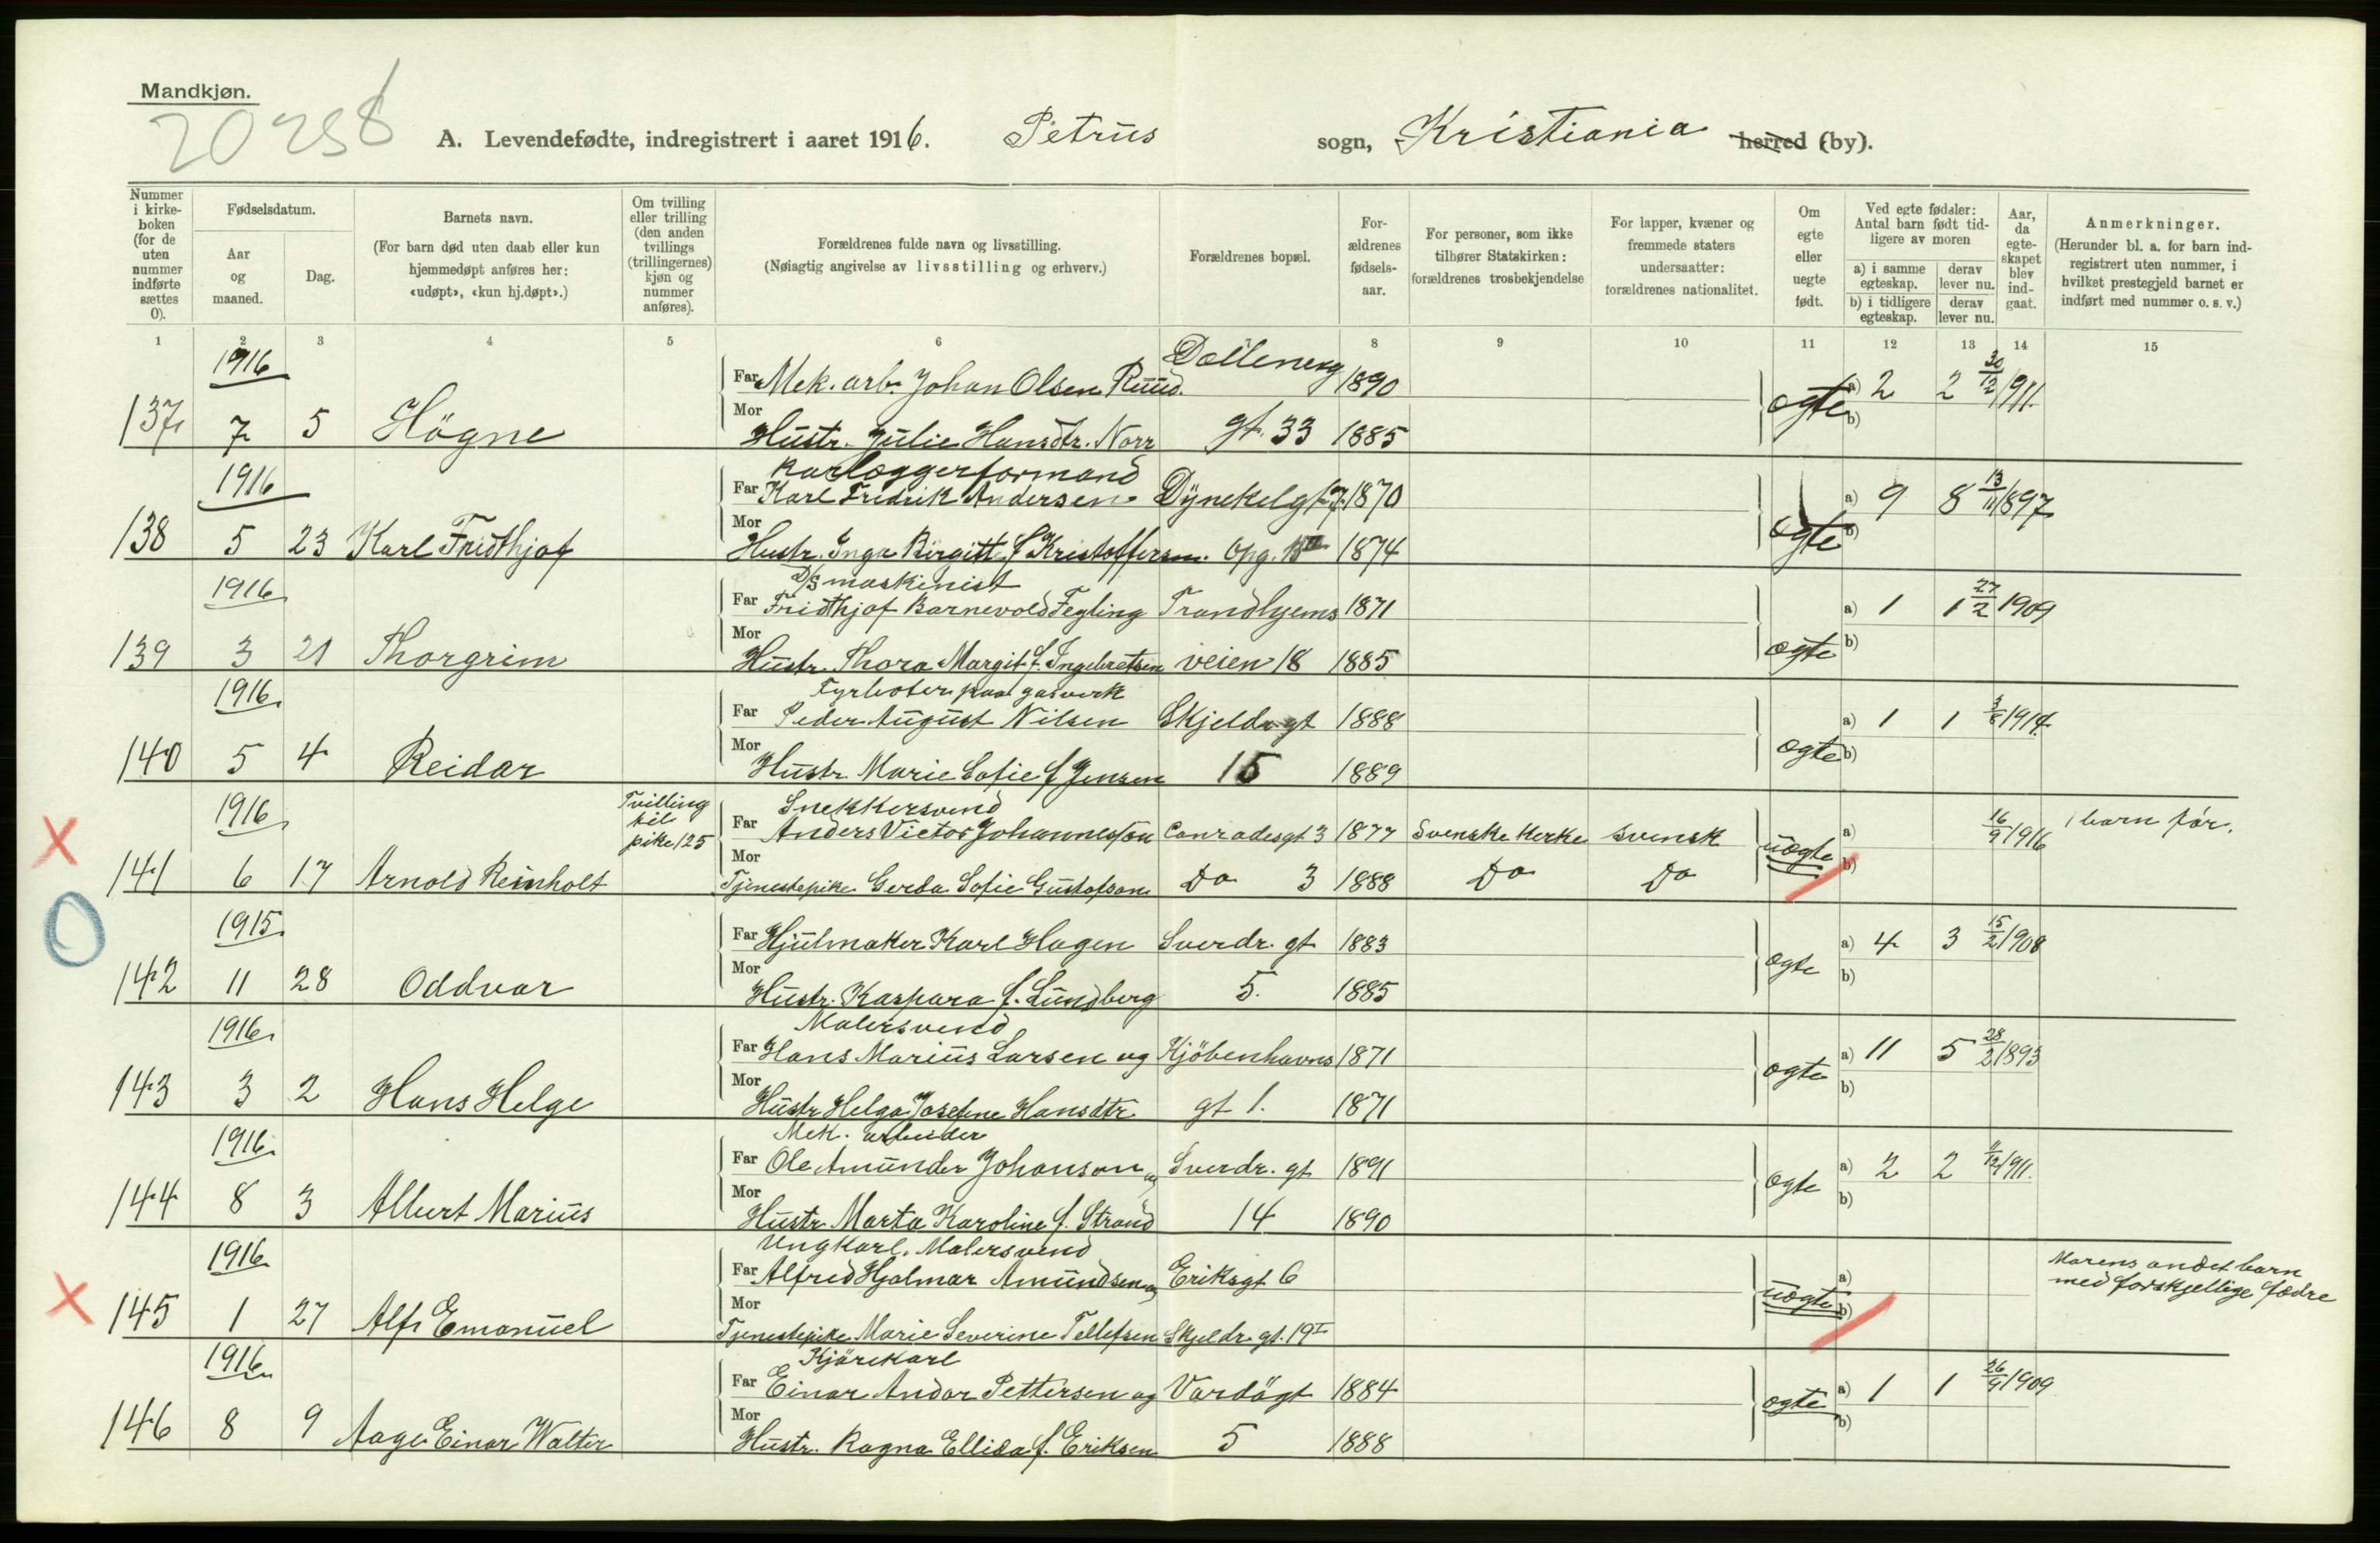 Mandkjøn.
20258
A. Levendefødte, indregistrert i aaret 1916. Petrus sogn, Kristiania herred (by).
Nummer i kirke-boken (for de uten nummer indførte sættes 0).
Fødselsdatum.
Aar og maaned.
Dag.
Barnets navn.
(For barn død uten daab eller kun hjemmedøpt anføres her: «udøpt», «kun hj.døpt».)
Om tvilling eller trilling (den anden tvillings (trillingernes) kjøn og nummer anføres).
Forældrenes fulde navn og livsstilling.
(Nøiagtig angivelse av livsstilling og erhverv.)
Forældrenes bopæl.
For-ældrenes fødsels-aar.
For personer, som ikke tilhører Statskirken: forældrenes trosbekjendelse
For lapper, kvæner og fremmede staters undersaatter: forældrenes nationalitet.
Om egte eller uegte født.
Ved egte fødsler: Antal barn født tid-ligere av moren
a) i samme egteskap.
derav lever nu.
b) i tidligere egteskap.
derav lever nu.
Aar, da egte-skapet blev ind-gaat.
Anmerkninger.
(Herunder bl. a. for barn ind-registrert uten nummer, i hvilket prestegjeld barnet er indført med nummer o. s. v.)
1 2 3 4 5 6 7 8 9 10 11 12 13 14 15
1916 Far Mek. arb. Johan Olsen Ruud. Dælleneng 1890 a) 2 2 30/12 1911.
137 7 5 Högne Mor Hustr. Julie Hansdtr. Norr gt. 33 1885 egte b)
1916 Karlæggerformand
Far Karl Fridrik Andersen Dynekilgt. 7 1870 a) 9 8 13/11 1897
138 5 23 Karl Fridthjof Mor Hustr. Inga Birgitte f. Kristoffersen. Opg. B III 1874 egte b)
1916 D/S maskinist
Far Fridthjof Barnevold Fegling Trondhjems 1871 a) 1 1 27/2 1909
139 3 21 Thorgrim Mor Hustr. Thora Margit f. Ingebretsen veien 18 1885 egte b)
1916 Fyrbøter paa gasverk
Far Peder August Nilsen Skjeldr. gt 1888 a) 1 1 3/8 1914.
140 5 4 Reidar Mor Hustr. Marie Sofie f Jensen 15 1889 egte b)
1916 Tvilling til pike 125 Snekkersvend
Far Anders Victor Johannesson Conradesgt 3 1877 Svenske Kerke svensk a) 16/9 1916 1 barn før.
141 6 17 Arnold Reinholt Mor Tjenestepike Gerda Sofie Gustafson Do 3 1888 Do Do uegte b)
1915 Far Hjulmaker Karl Hagen Sverdr. gt 1883 a) 4 3 15/2 1908
142 11 28 Oddvar Mor Hustr. Kaspara f. Lundberg 5. 1885 egte b)
1916 Malersvend
Far Hans Marius Larsen og Kjöbenhavns 1871 a) 11 5 28/2 1893
143 3 2 Hans Helge Mor Hustr Helga Josefine Hansdtr gt 1. 1871 egte b)
1916 Mek. arbeider
Far Ole Amunder Johanson og Sverdr. gt 1891 a) 2 2 /12 1911.
144 8 3 Albert Marius Mor Hustr Marta Karoline f. Strand 14 1890 egte b)
1916 Ungkarl. Malersvend
Far Alfred Hjalmar Amundsen og Eriksgt 6 a) Morens andet barn
med forskjellige fædre
145 1 27 Alf Emanuel Mor Tjenestepike Marie Severine Tellefsen Skjeldr. gt. 19 I uegte b)
1916 Kjörekarl
Far Einar Andor Pettersen og Vardögt 1884 a) 1 1 26/9 1909
146 8 9 Aage Einar Walter Mor Hustr. Ragna Ellida f. Eriksen 5 1888 egte b)